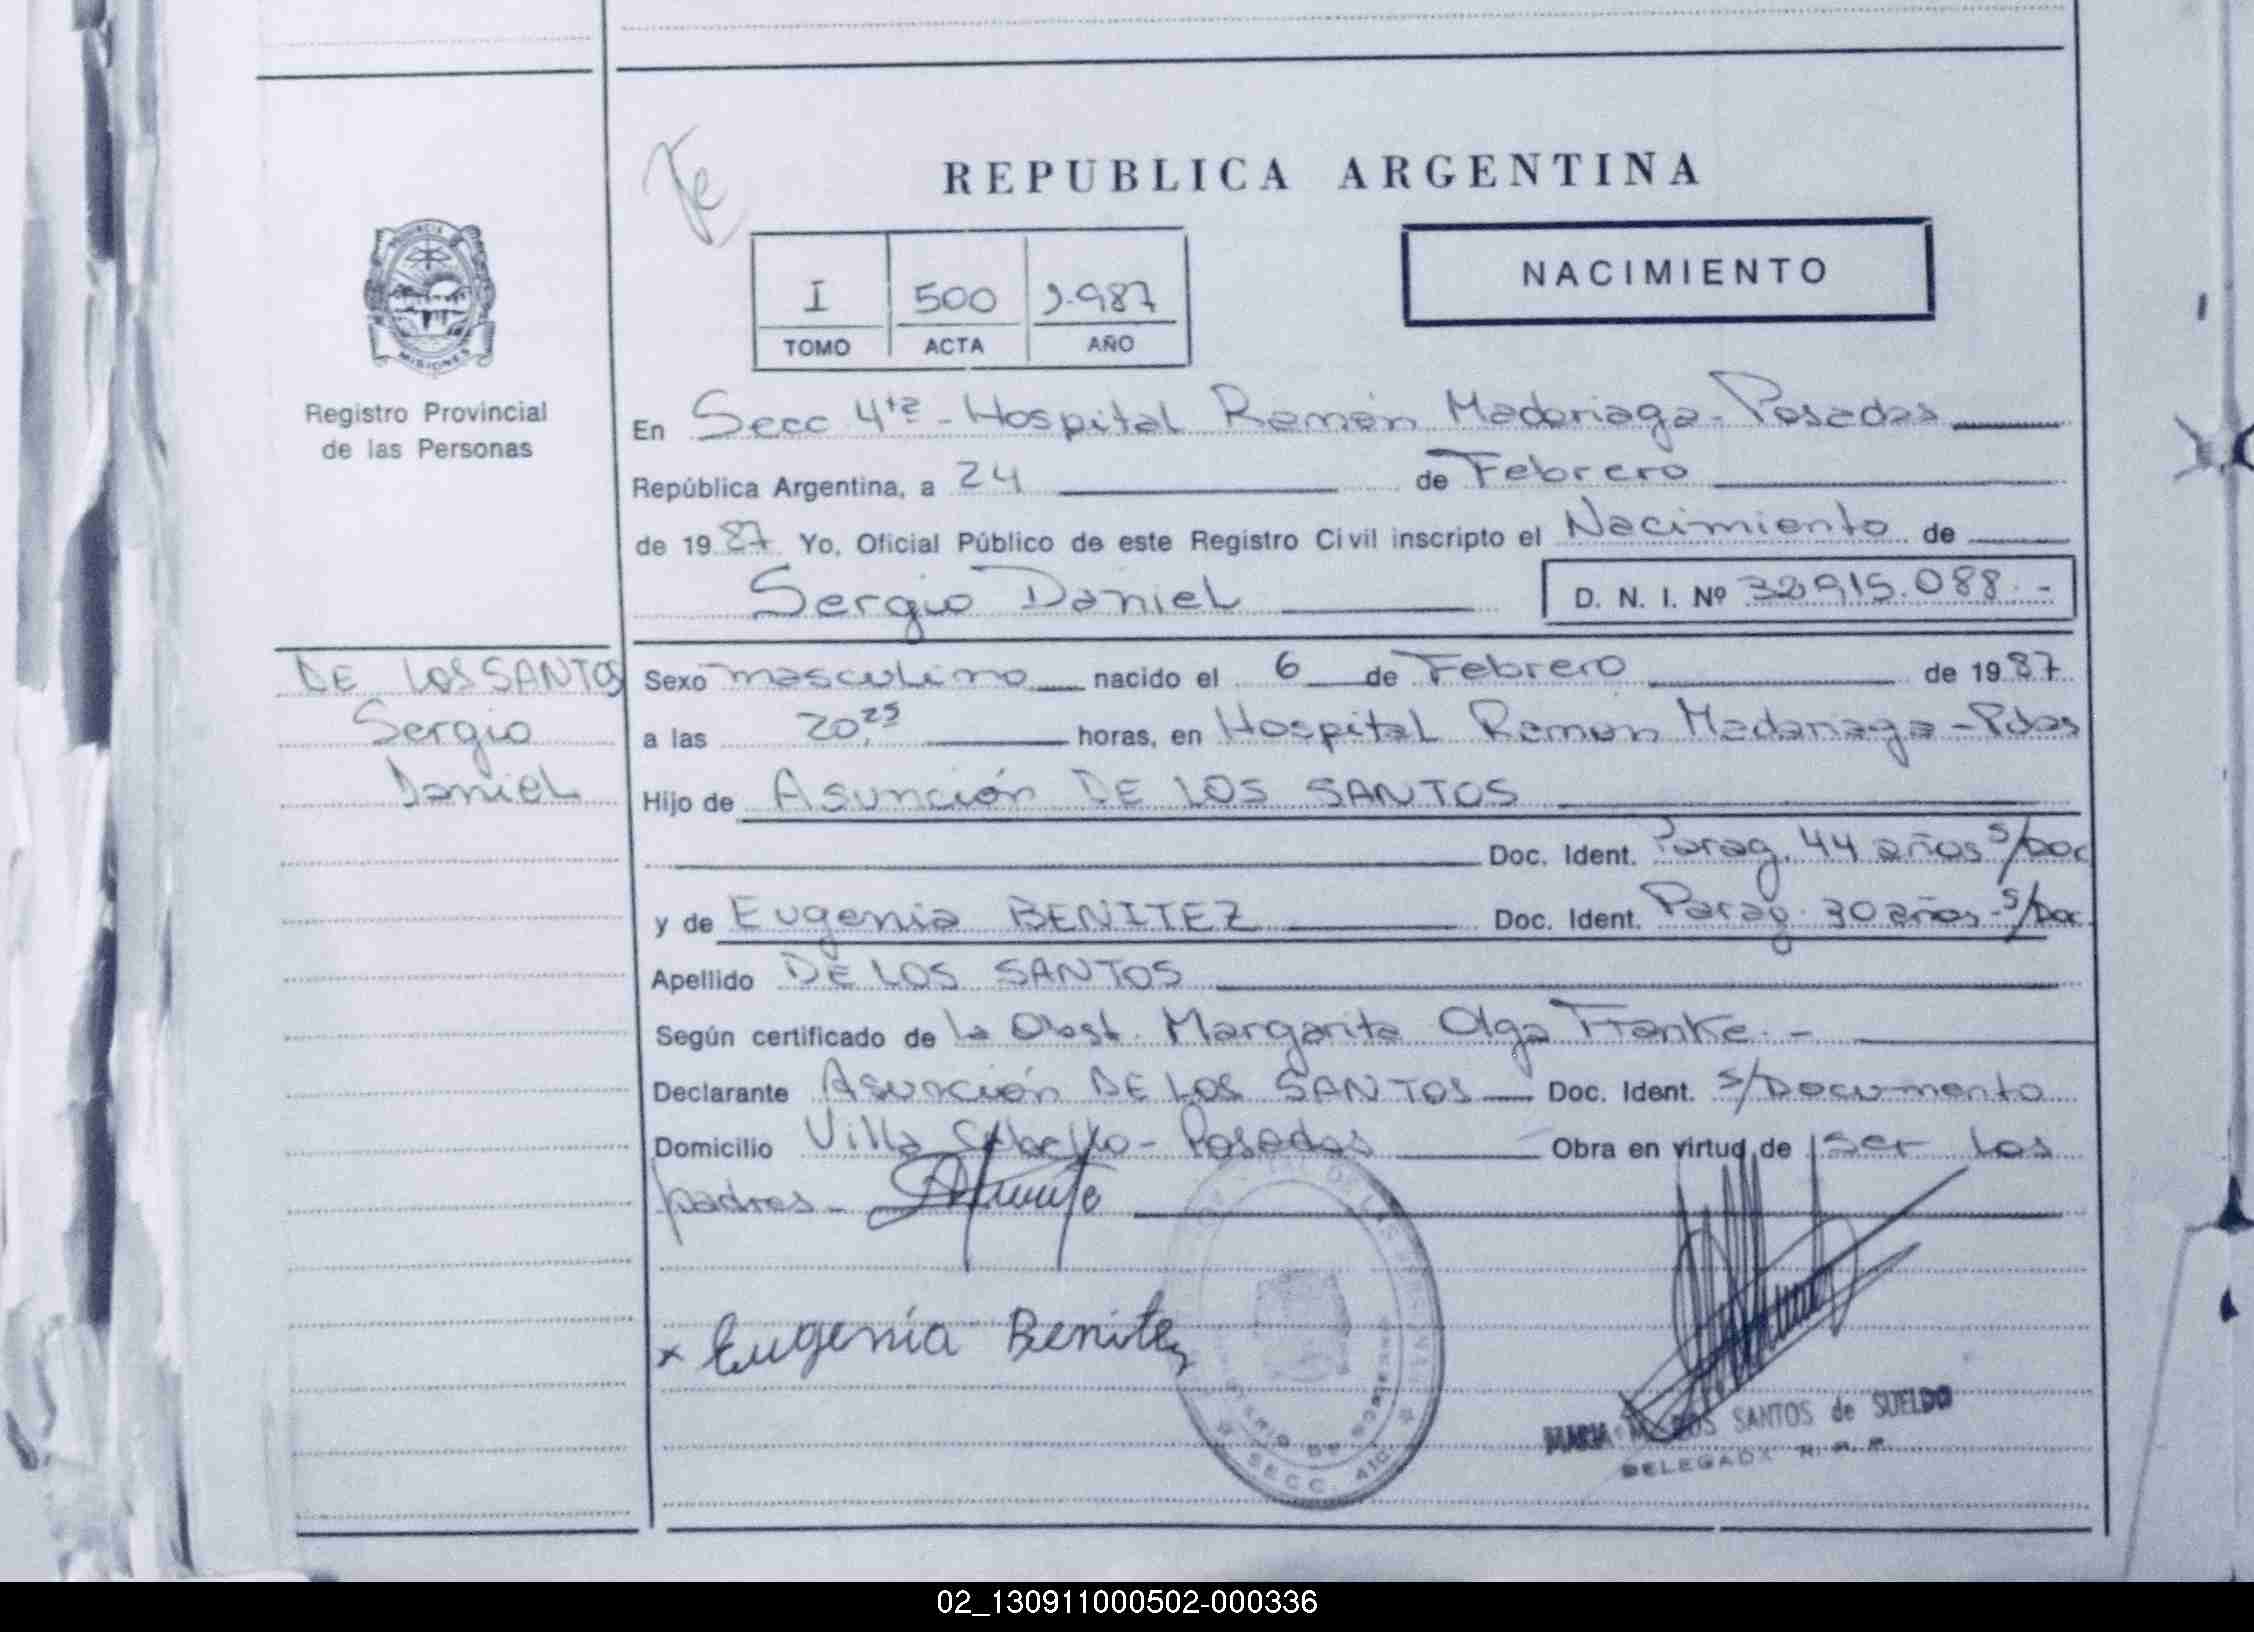 REPUBLICA ARGENTINA
NACIMIENTO
I 500 1.987
TOMO ACTA AÑO
PROVINCIA
MISIONES
Registro Provincial
de las Personas
En Secc 4ta - Hospital Ramón Madariaga - Posadas
República Argentina, a 24 de Febrero
de 1987 Yo, Oficial Público de este Registro Civil inscripto el Nacimiento de
Sergio Daniel D. N. I. Nº 32915.088.-
DE LOS SANTOS
Sergio
Daniel
Sexo masculino nacido el 6 de Febrero de 1987
a las 20,25 horas, en Hospital Ramón Madariaga - Pdas
Hijo de Asunción DE LOS SANTOS
Doc. Ident. Parag. 44 años s/Doc
y de Eugenia BENITEZ Doc. Ident. Parag. 30 años - s/Doc.
Apellido DE LOS SANTOS
Según certificado de la Obst. Margarita Olga Franke. -
Declarante Asunción DE LOS SANTOS Doc. Ident. s/Documento
Domicilio Villa Cabello - Posadas Obra en virtud de ser los
padres -
x Eugenia Benitez
SECC. 4ta
MARIA SANTOS de SUELDO
DELEGADA R. P. P.
02_130911000502-000336